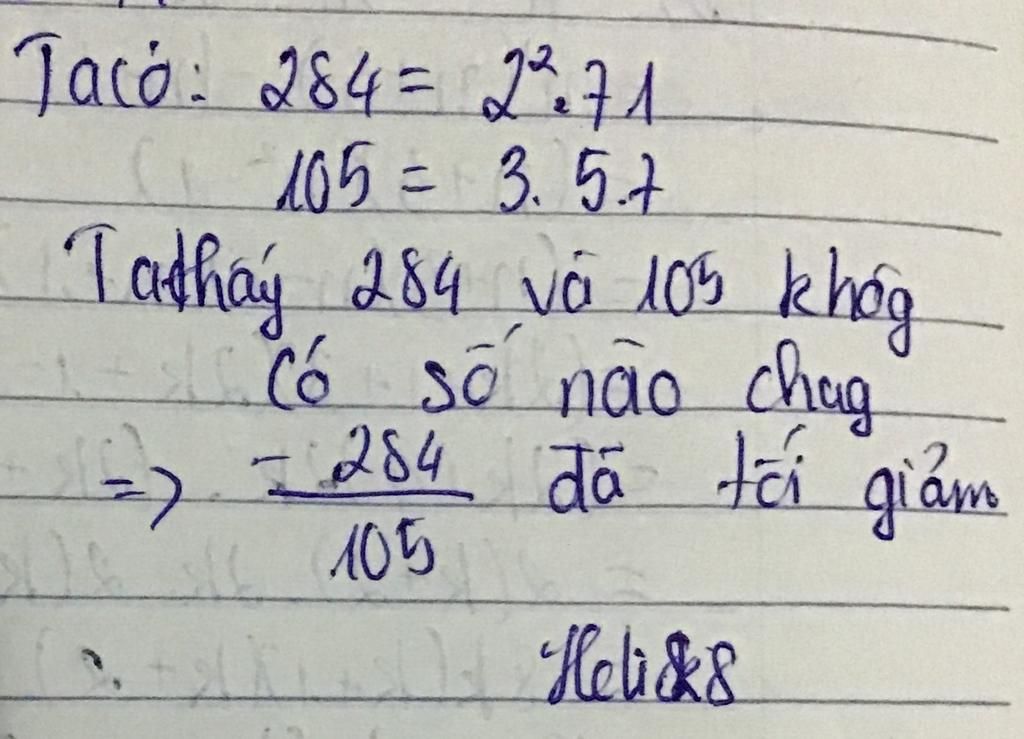 Ta có: 284 = 2².71
105 = 3.5.7
Ta thấy 284 và 105 khôg
có số nào chug
=> -284/105 đã tối giảm